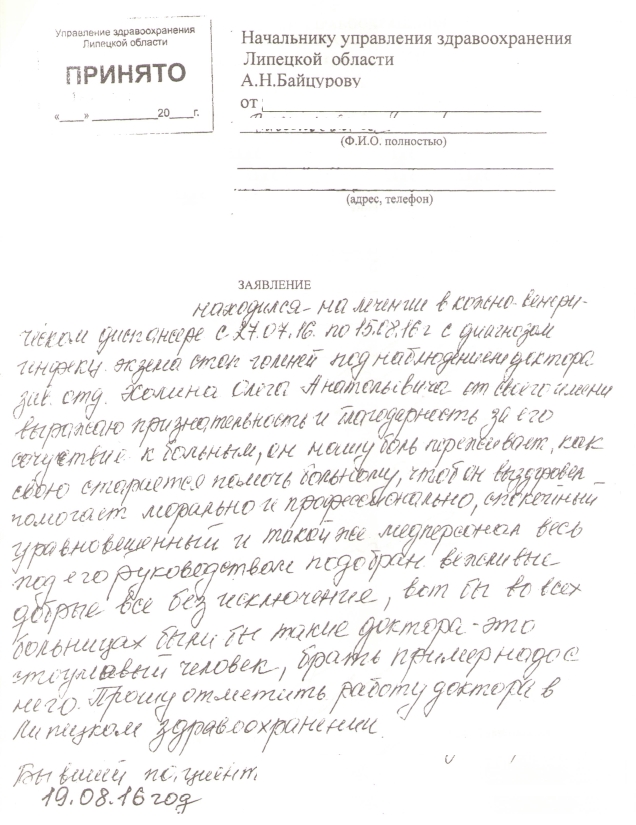 Управление здравоохранения
Липецкой области
ПРИНЯТО
«____» ____________20____г.
Начальнику управления здравоохранения
Липецкой области
А.Н.Байцурову
от
(Ф.И.О. полностью)
(адрес, телефон)
ЗАЯВЛЕНИЕ
находился на лечении в кожно-венери-
ческом диспансере с 27.07.16. по 15.08.16г с диагнозом
инфекц. экзема стоп голеней под наблюдением доктора
зав. отд. Халина Олега Анатольевича от своего имени
выражаю признательность и благодарность за его
сочувствие к больным, он нашу боль переживает, как
свою старается помочь больному, чтоб он выздоровел
помогает морально и профессионально, спокойный
уравновешенный и такой же медперсонал весь
под его руководством подобран вежливые
добрые все без исключение, вот бы во всех
больницах были бы такие доктора - это
человек, брать пример надо с
него. Прошу отметить работу доктора в
Липецком здравоохранении.
Бывший пациент.
19.08.16 год